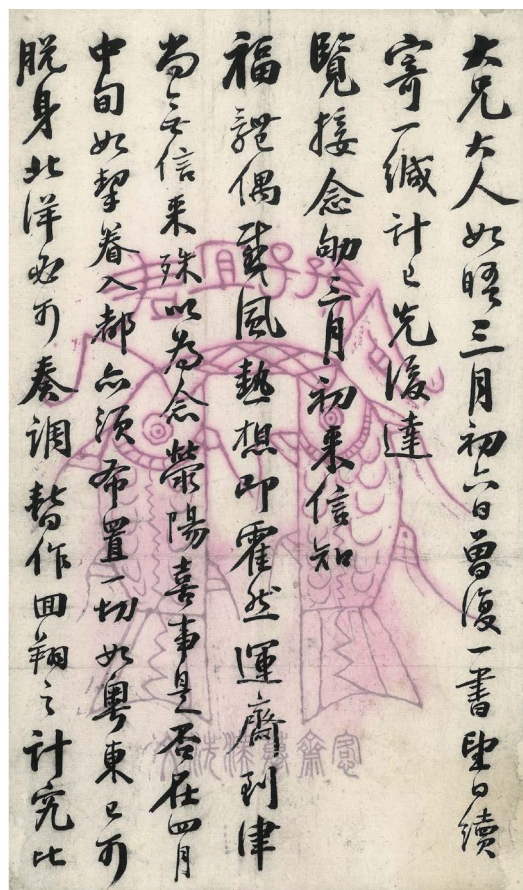 大兄大人如晤三月初六日曾復一書望日續
寄一緘計已先後達
覽接念劬三月初來信知
福體偶感風熱想即霍然運齋到津
尚無信來殊以為念滎陽喜事是否在四月
中旬如挈眷入都亦須布置一切如粵東已可
脫身北洋必可奏調暫作回翔之計究比
宜子孫
憲齋